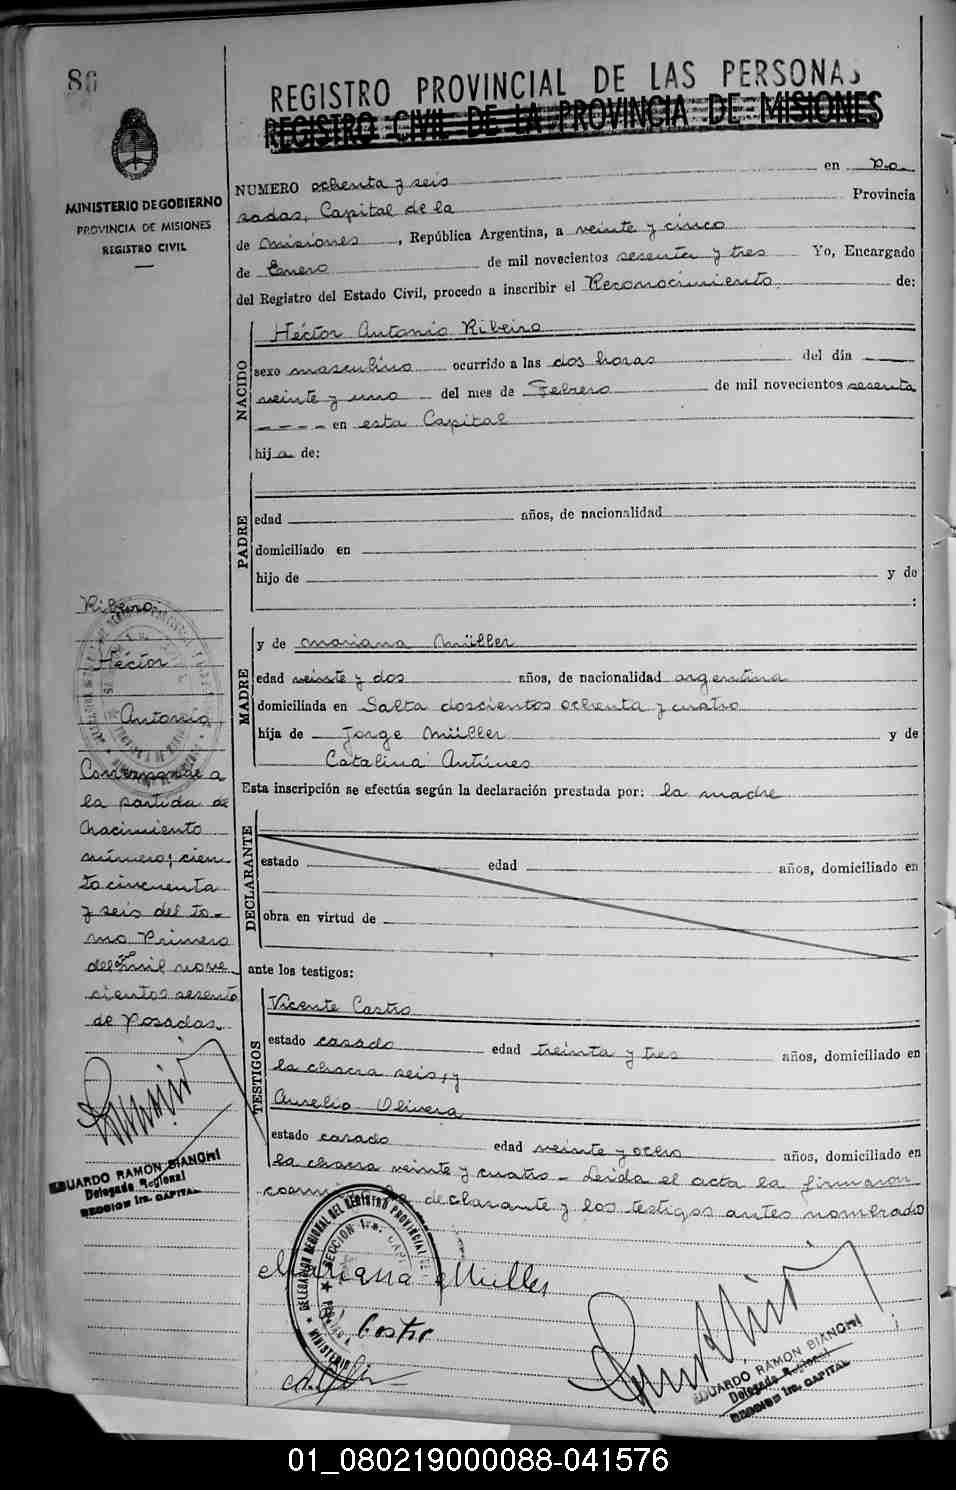 86
REGISTRO PROVINCIAL DE LAS PERSONAS
REGISTRO CIVIL DE LA PROVINCIA DE MISIONES
MINISTERIO DE GOBIERNO
PROVINCIA DE MISIONES
REGISTRO CIVIL
NUMERO ochenta y seis en Po
sadas, Capital de la Provincia
de Misiones, República Argentina, a veinte y cinco
de Enero de mil novecientos sesenta y tres Yo, Encargado
del Registro del Estado Civil, procedo a inscribir el Reconocimiento de:
NACIDO
Héctor Antonio Ribeiro
sexo masculino ocurrido a las dos horas del día
veinte y uno del mes de Febrero de mil novecientos sesenta
en esta Capital
hijo de:
PADRE
edad años, de nacionalidad
domiciliado en
hijo de y de
:
MADRE
y de Mariana Müller
edad veinte y dos años, de nacionalidad argentina
domiciliada en Salta doscientos ochenta y cuatro
hija de Jorge Müller y de
Catalina Antúnes
Esta inscripción se efectúa según la declaración prestada por: la madre
DECLARANTE
estado edad años, domiciliado en
obra en virtud de
ante los testigos:
TESTIGOS
Vicente Castro
estado casado edad treinta y tres años, domiciliado en
la chacra seis, y
Aurelio Olivera
estado casado edad veinte y ocho años, domiciliado en
la chacra veinte y cuatro - Leida el acta la firmaron
la declarante y los testigos antes nombrado
Mariana Muller
Castro
EDUARDO RAMON BIANCHI
Delegado Regional
SECCION 1ra. CAPITAL
Ribeiro,
Héctor
Antonio,
Corresponde a
la partida de
Nacimiento
número; cien
to cincuenta
y seis del to-
mo Primero
del mil nove
cientos sesenta
de Posadas.
EDUARDO RAMON BIANCHI
Delegado Regional
SECCION 1ra. CAPITAL
01_080219000088-041576